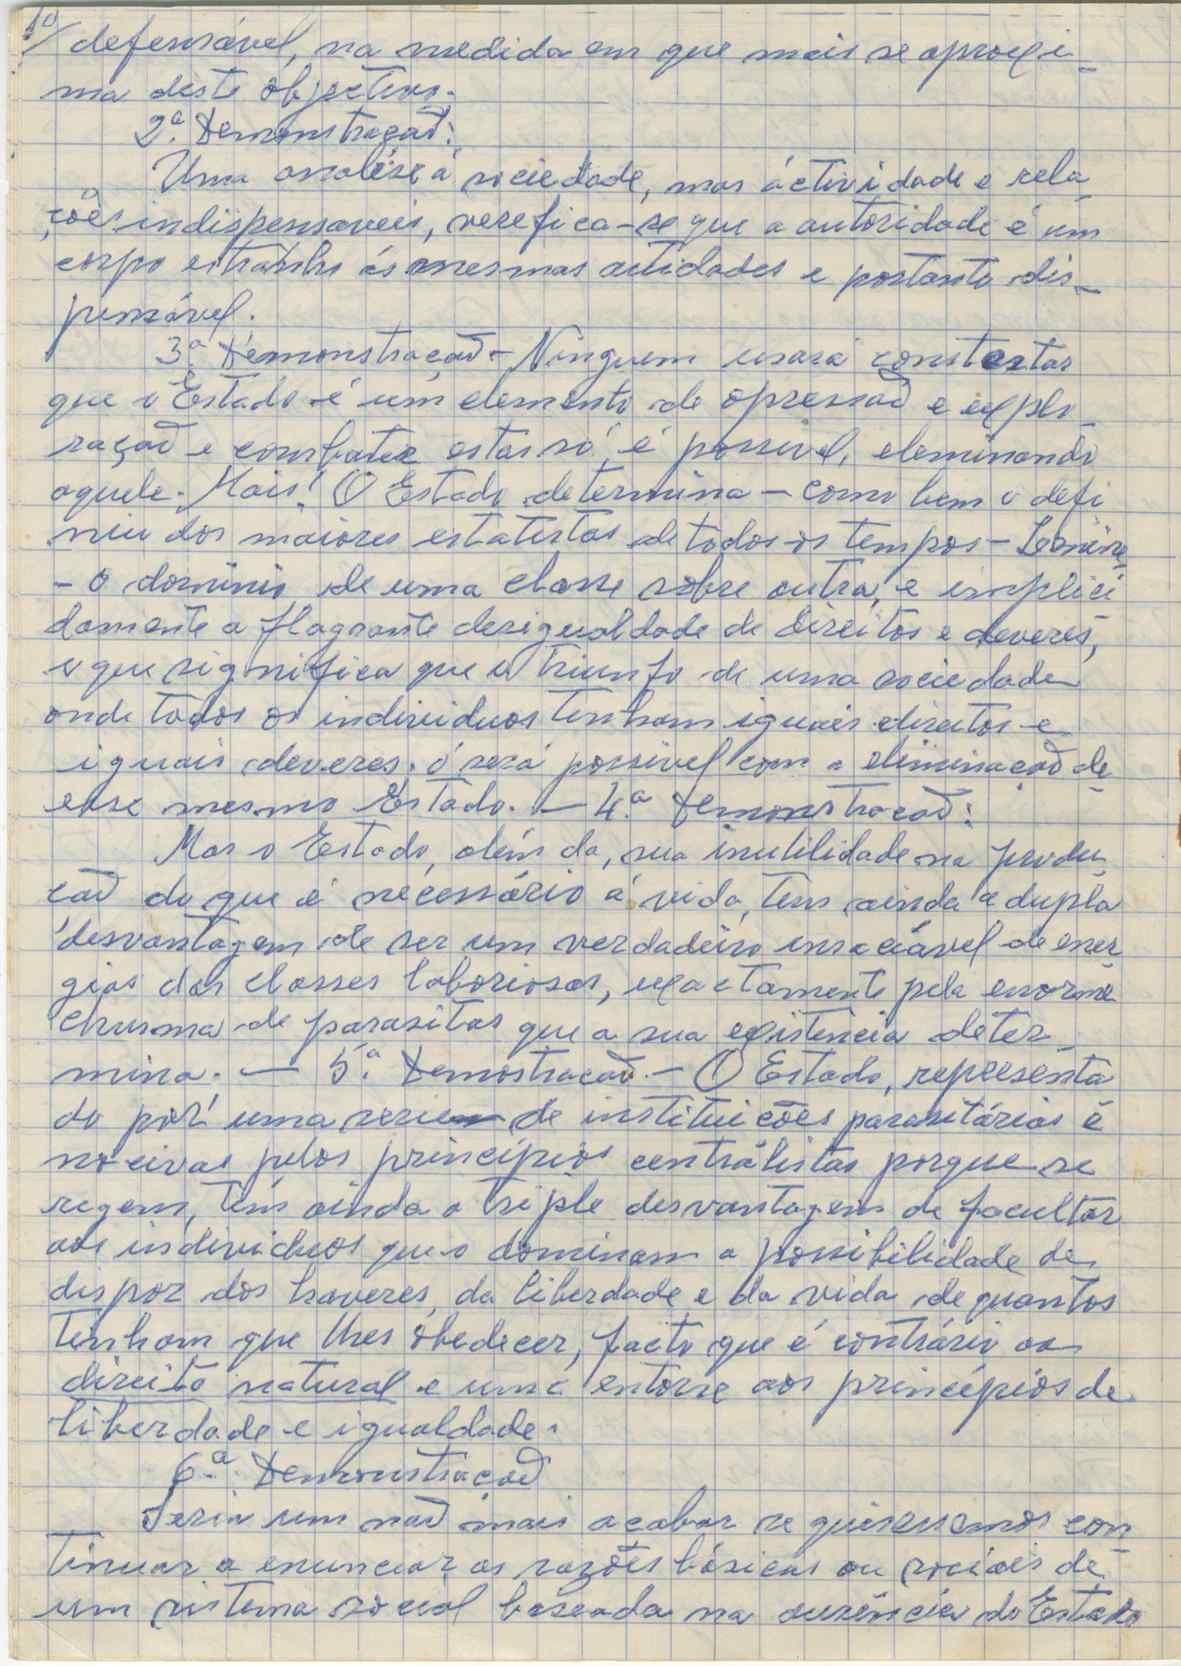 10/
defensável, na medida em que mais se aproxi-
ma deste objectivo.
2ª. Demonstração:
Uma análise á sociedade, mas áctividade e rela
ções indispensaveis, verefica-se que a autoridade é um
corpo estranho ás mesmas actidades e portanto dis-
pensável.
3ª. Demonstração - Ninguem usará constestar
que o Estado é um elemento de opressaõ e explo
raçaõ e combater estas só é possivel, eleminando
aquele. Mais! O Estado determina - como bem o defi
niu dos maiores estatistas de todos os tempos - Lenine
- o dominio de uma classe sobre outra, e implici
damente a flagrante desigualdade de direitos e deveres,
o que significa que o triunfo de uma sociedade
onde todos os individuos tenham iguais direitos e
iguais deveres, ó será possivel com a eliminaçaõ de
esse mesmo Estado. — 4ª. Demonstracaõ:
Mas o Estado, além da, sua inutilidade na produ
caõ do que é necessário á vida, tem ainda a dupla
desvantagem de ser um verdadeiro insaciável de ener
gias das classes laboriosas, exactamente pela enorme
chusma de parasitas que a sua existencia deter
mina. — 5ª. Demostracaõ. - O Estado, representa
do por uma serie de instituicões parasitárias é
nocivas pelos princípios centrálistas porque se
regem, tem ainda a triple desvantagem de facultar
aos individuos que o dominam a possibilidade de
dispor dos haveres, da liberdade e da vida de quantos
tenham que lhes obedecer, facto que é contrário ao
direito natural e uma entorse aos princípios de
liberdade e igualdade.
6ª. Demonstraçaõ
Seria um naõ mais acabar se quisessemos con-
tinuar a enunciar as razões básicas ou sociais de
um sistema social baseada na ausência do Estado